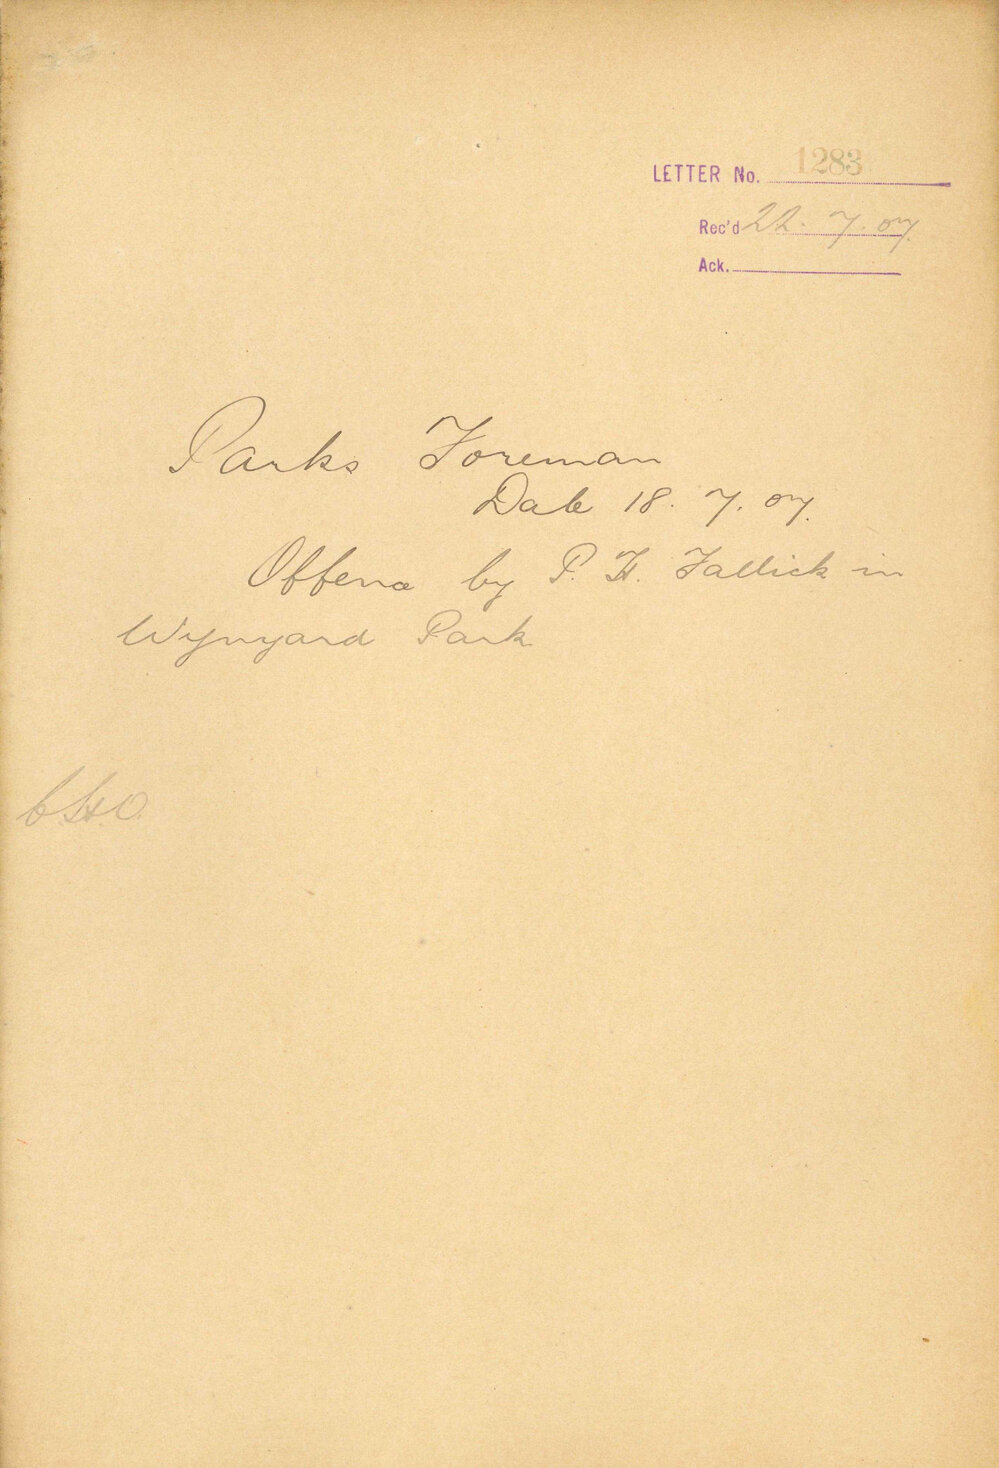 LETTER No. 1283
Rec'd 22. 7. 07.
Ack.
Parks Foreman
Date 18. 7. 07.
Offence by P. H. Fallick in
Wynyard Park